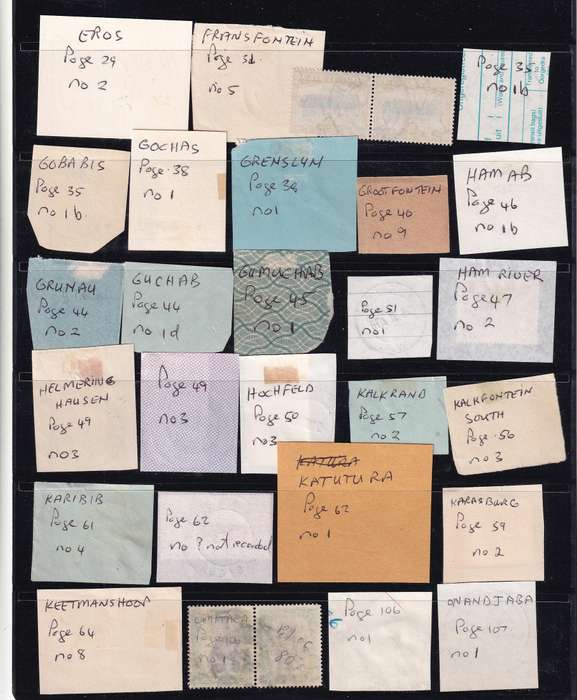 EROS
Page 29
no 2
FRANSFONTEIN
Page 31
no 5
Page 35
no 1b
GOBABIS
Page 35
no 1b.
GOCHAS
Page 38
no 1
GRENSLYN
Page 39
no1
GROOTFONTEIN
Page 40
no 9
HAM AB
Page 46
no 1b
GRUNAU
Page 44
no 2
GUCHAB
Page 44
no 1d
GUMUCHAB
Page 45
no 1
Page 51
no1
HAM RIVER
Page 47
no 2
HELMERING
HAUSEN
Page 49
no3
Page 49
no3
HOCHFELD
Page 50
no3
KALKRAND
Page 57
no 2
KALKFONTEIN
SOUTH
Page 56
no 3
KARIBIB
Page 61
no 4
Page 62
no ? not recorded
KATUTURA
Page 62
no 1
KARASBURG
Page 59
no 2
KEETMANSHOOP
Page 64
no 8
Page 106
no1
ONANDJABA
Page 107
no 1